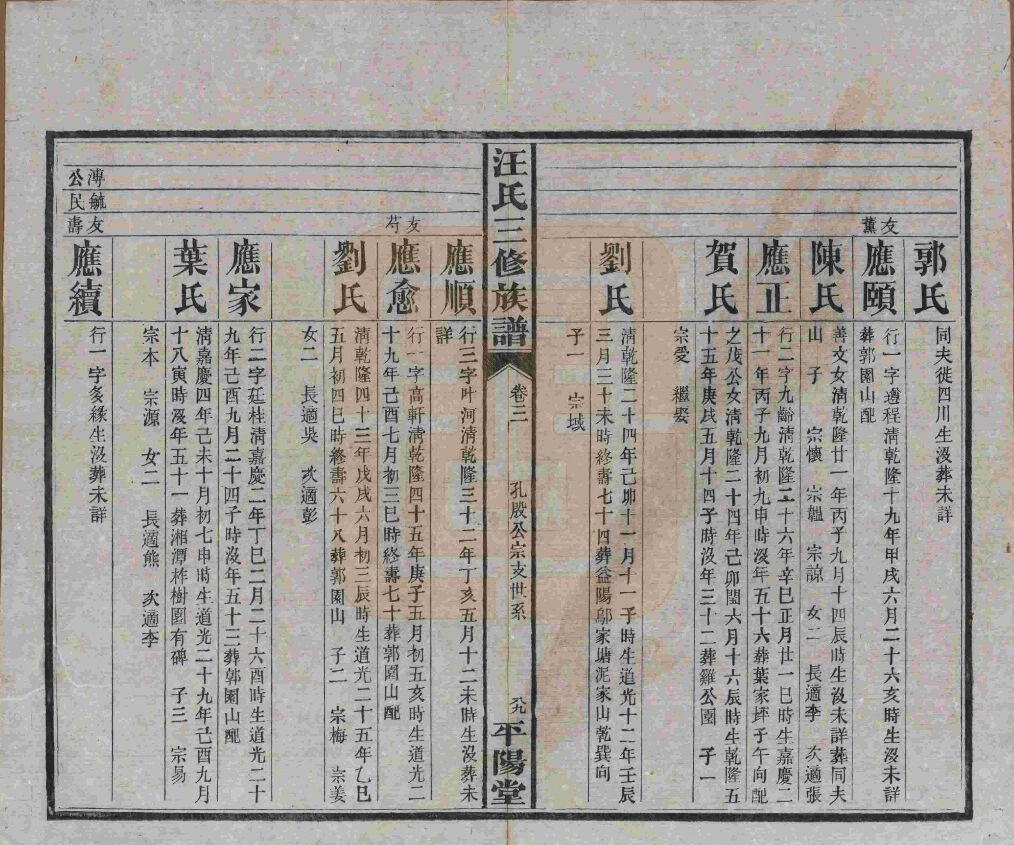 郭氏
同夫徙四川生沒葬未詳
友薰
應頤
行一字遵程清乾隆十九年甲戌六月二十六亥時生沒未詳
葬郭園山配
陳氏
善文女清乾隆廿一年丙子九月十四辰時生沒未詳葬同夫
山 子 宗懷 宗韞 宗諒 女二 長適李 次適張
應正
行二字九齡清乾隆二十六年辛巳正月廿一巳時生嘉慶二
十一年丙子九月初九申時沒年五十六葬葉家坪子午向配
賀氏
之茂公女清乾隆二十四年己卯閏六月十六辰時生乾隆五
十五年庚戌五月十四子時沒年三十二葬羅公園 子一
宗愛 繼娶
劉氏
清乾隆二十四年己卯十一月十一子時生道光十二年壬辰
三月三十未時終壽七十四葬益陽鄔家塘泥家山乾巽向
子一 宗域
汪氏三修族譜
卷二
孔殷公宗支世系
六九
平陽堂
應順
行三字叶河清乾隆三十二年丁亥五月十二未時生沒葬未
詳
友芍
應愈
行一字高軒清乾隆四十五年庚子五月初五亥時生道光二
十九年己酉七月初三巳時終壽七十葬郭園山配
劉氏
清乾隆四十三年戊戌六月初三辰時生道光二十五年乙巳
五月初四巳時終壽六十八葬郭園山 子二 宗梅 宗姜
女二 長適吳 次適彭
應家
行二字廷桂清嘉慶二年丁巳二月二十六酉時生道光二十
九年己酉九月二十四子時沒年五十三葬郭園山配
葉氏
清嘉慶四年己未十月初七申時生道光二十九年己酉九月
十八寅時沒年五十一葬湘潭柞樹園有碑 子三 宗易
宗本 宗源 女二 長適熊 次適李
溥毓友
公民壽
應續
行一字多緣生沒葬未詳